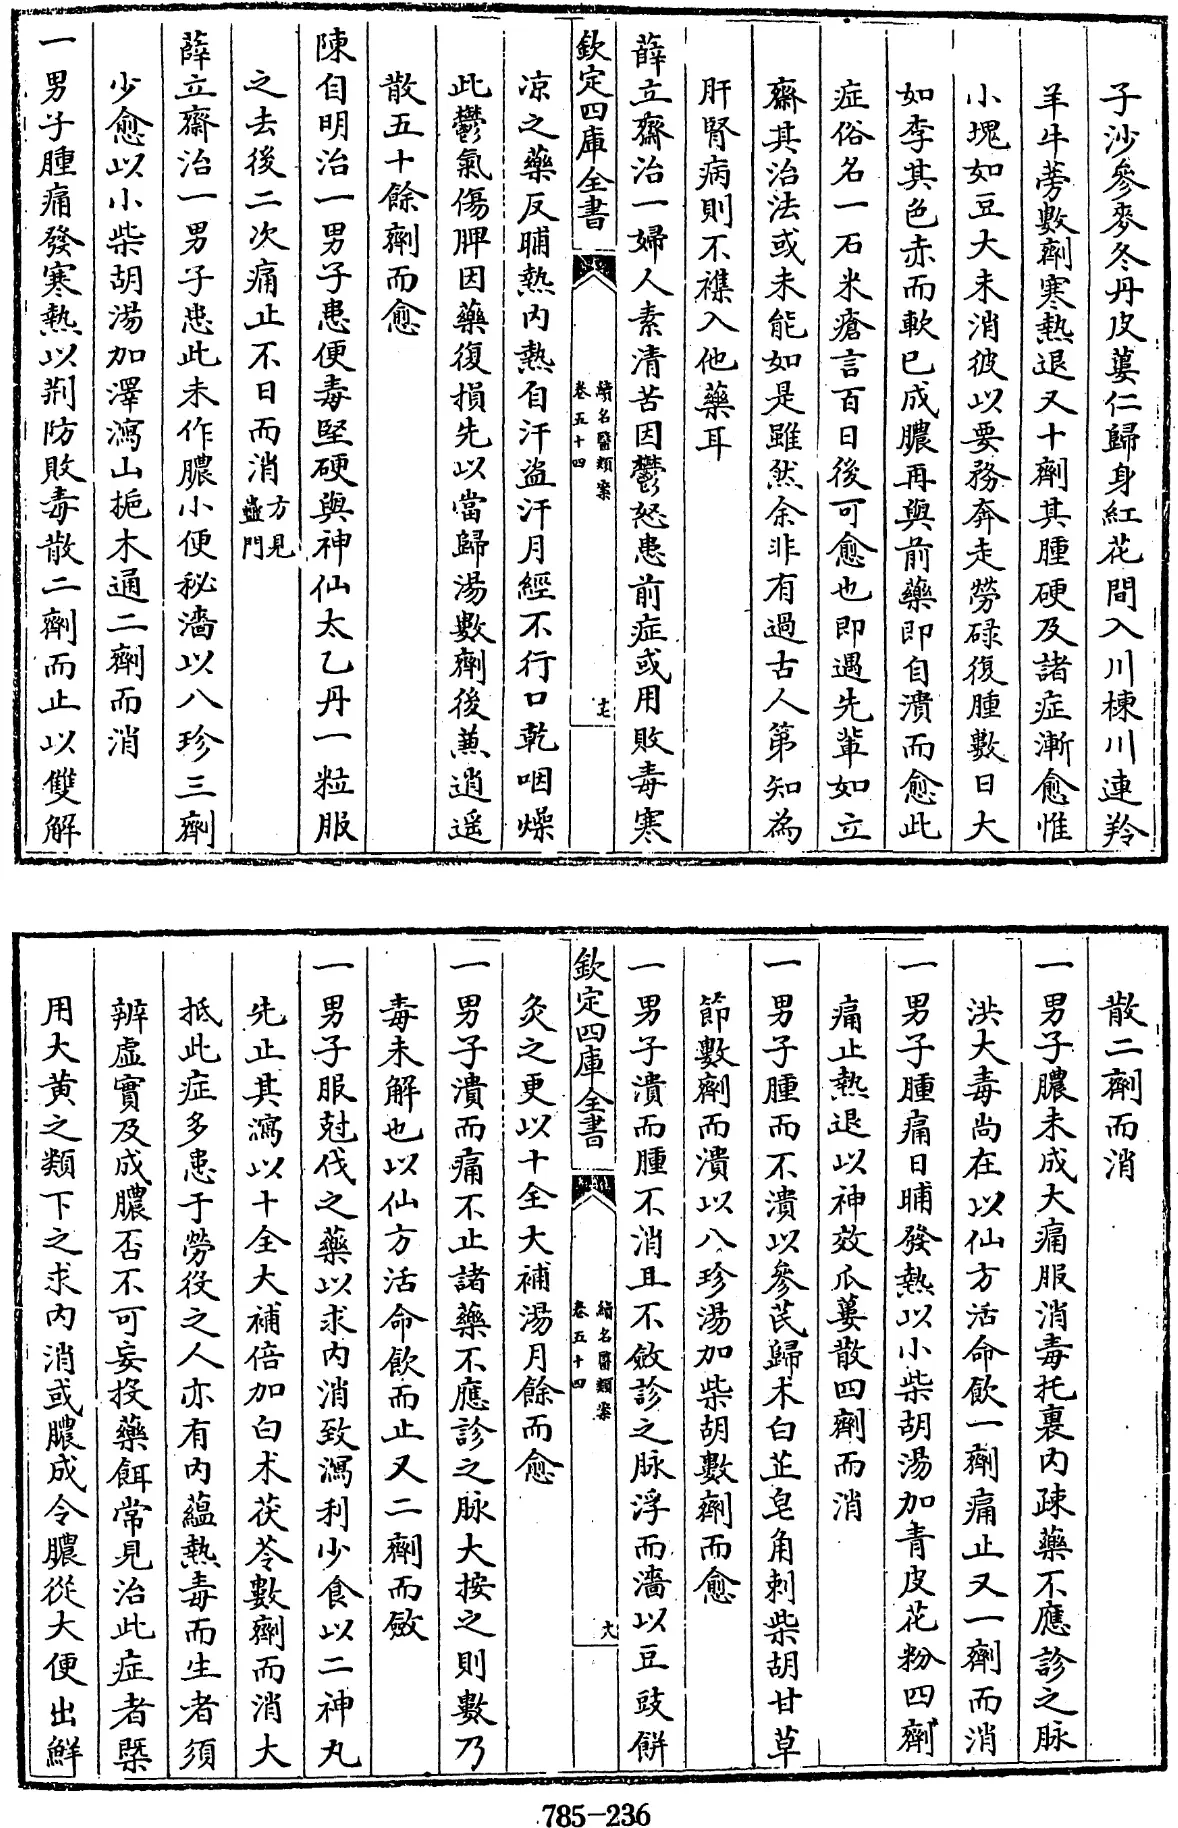 子沙參麥冬丹皮蔞仁歸身紅花間入川楝川連羚
羊牛蒡數劑寒熱退又十劑其腫硬及諸症漸愈惟
小塊如豆大未消彼以要務奔走勞碌復腫數日大
如李其色赤而軟已成膿再與前藥即自潰而愈此
症俗名一石米瘡言百日後可愈也即遇先輩如立
齋其治法或未能如是雖然余非有過古人第知為
肝腎病則不襍入他藥耳
薛立齋治一婦人素清苦因鬱怒患前症或用敗毒寒
欽定四庫全書
續名醫類案
卷五十四
涼之藥反晡熱內熱自汗盜汗月經不行口乾咽燥
此鬱氣傷脾因藥復損先以當歸湯數劑後蕪逍遥
散五十餘劑而愈
陳自明治一男子患便毒堅硬與神仙太乙丹一粒服
之去後二次痛止不日而消方見蠱門
薛立齋治一男子患此未作膿小便秘濇以八珍三劑
少愈以小柴胡湯加澤瀉山梔木通二劑而消
一男子腫痛發寒熱以荆防敗毒散二劑而止以雙解
散二劑而消
一男子膿未成大痛服消毒托裏內疎藥不應診之脉
洪大毒尚在以仙方活命飲一劑痛止又一劑而消
一男子腫痛日晡發熱以小柴胡湯加青皮花粉四劑
痛止熱退以神效瓜蔞散四劑而消
一男子腫而不潰以參芪歸术白芷皂角刺柴胡甘草
節數劑而潰以八珍湯加柴胡數劑而愈
一男子潰而腫不消且不斂診之脉浮而濇以豆豉餅
欽定四庫全書
續名醫類案
卷五十四
灸之更以十全大補湯月餘而愈
一男子潰而痛不止諸藥不應診之脉大按之則數乃
毒未解也以仙方活命飲而止又二劑而斂
一男子服尅伐之藥以求內消致瀉利少食以二神丸
先止其瀉以十全大補倍加白术茯苓數劑而消大
抵此症多患于勞役之人亦有內蘊熱毒而生者須
辨虛實及成膿否不可妄投藥餌常見治此症者槩
用大黃之類下之求內消或膿成令膿從大便出鮮
785-236